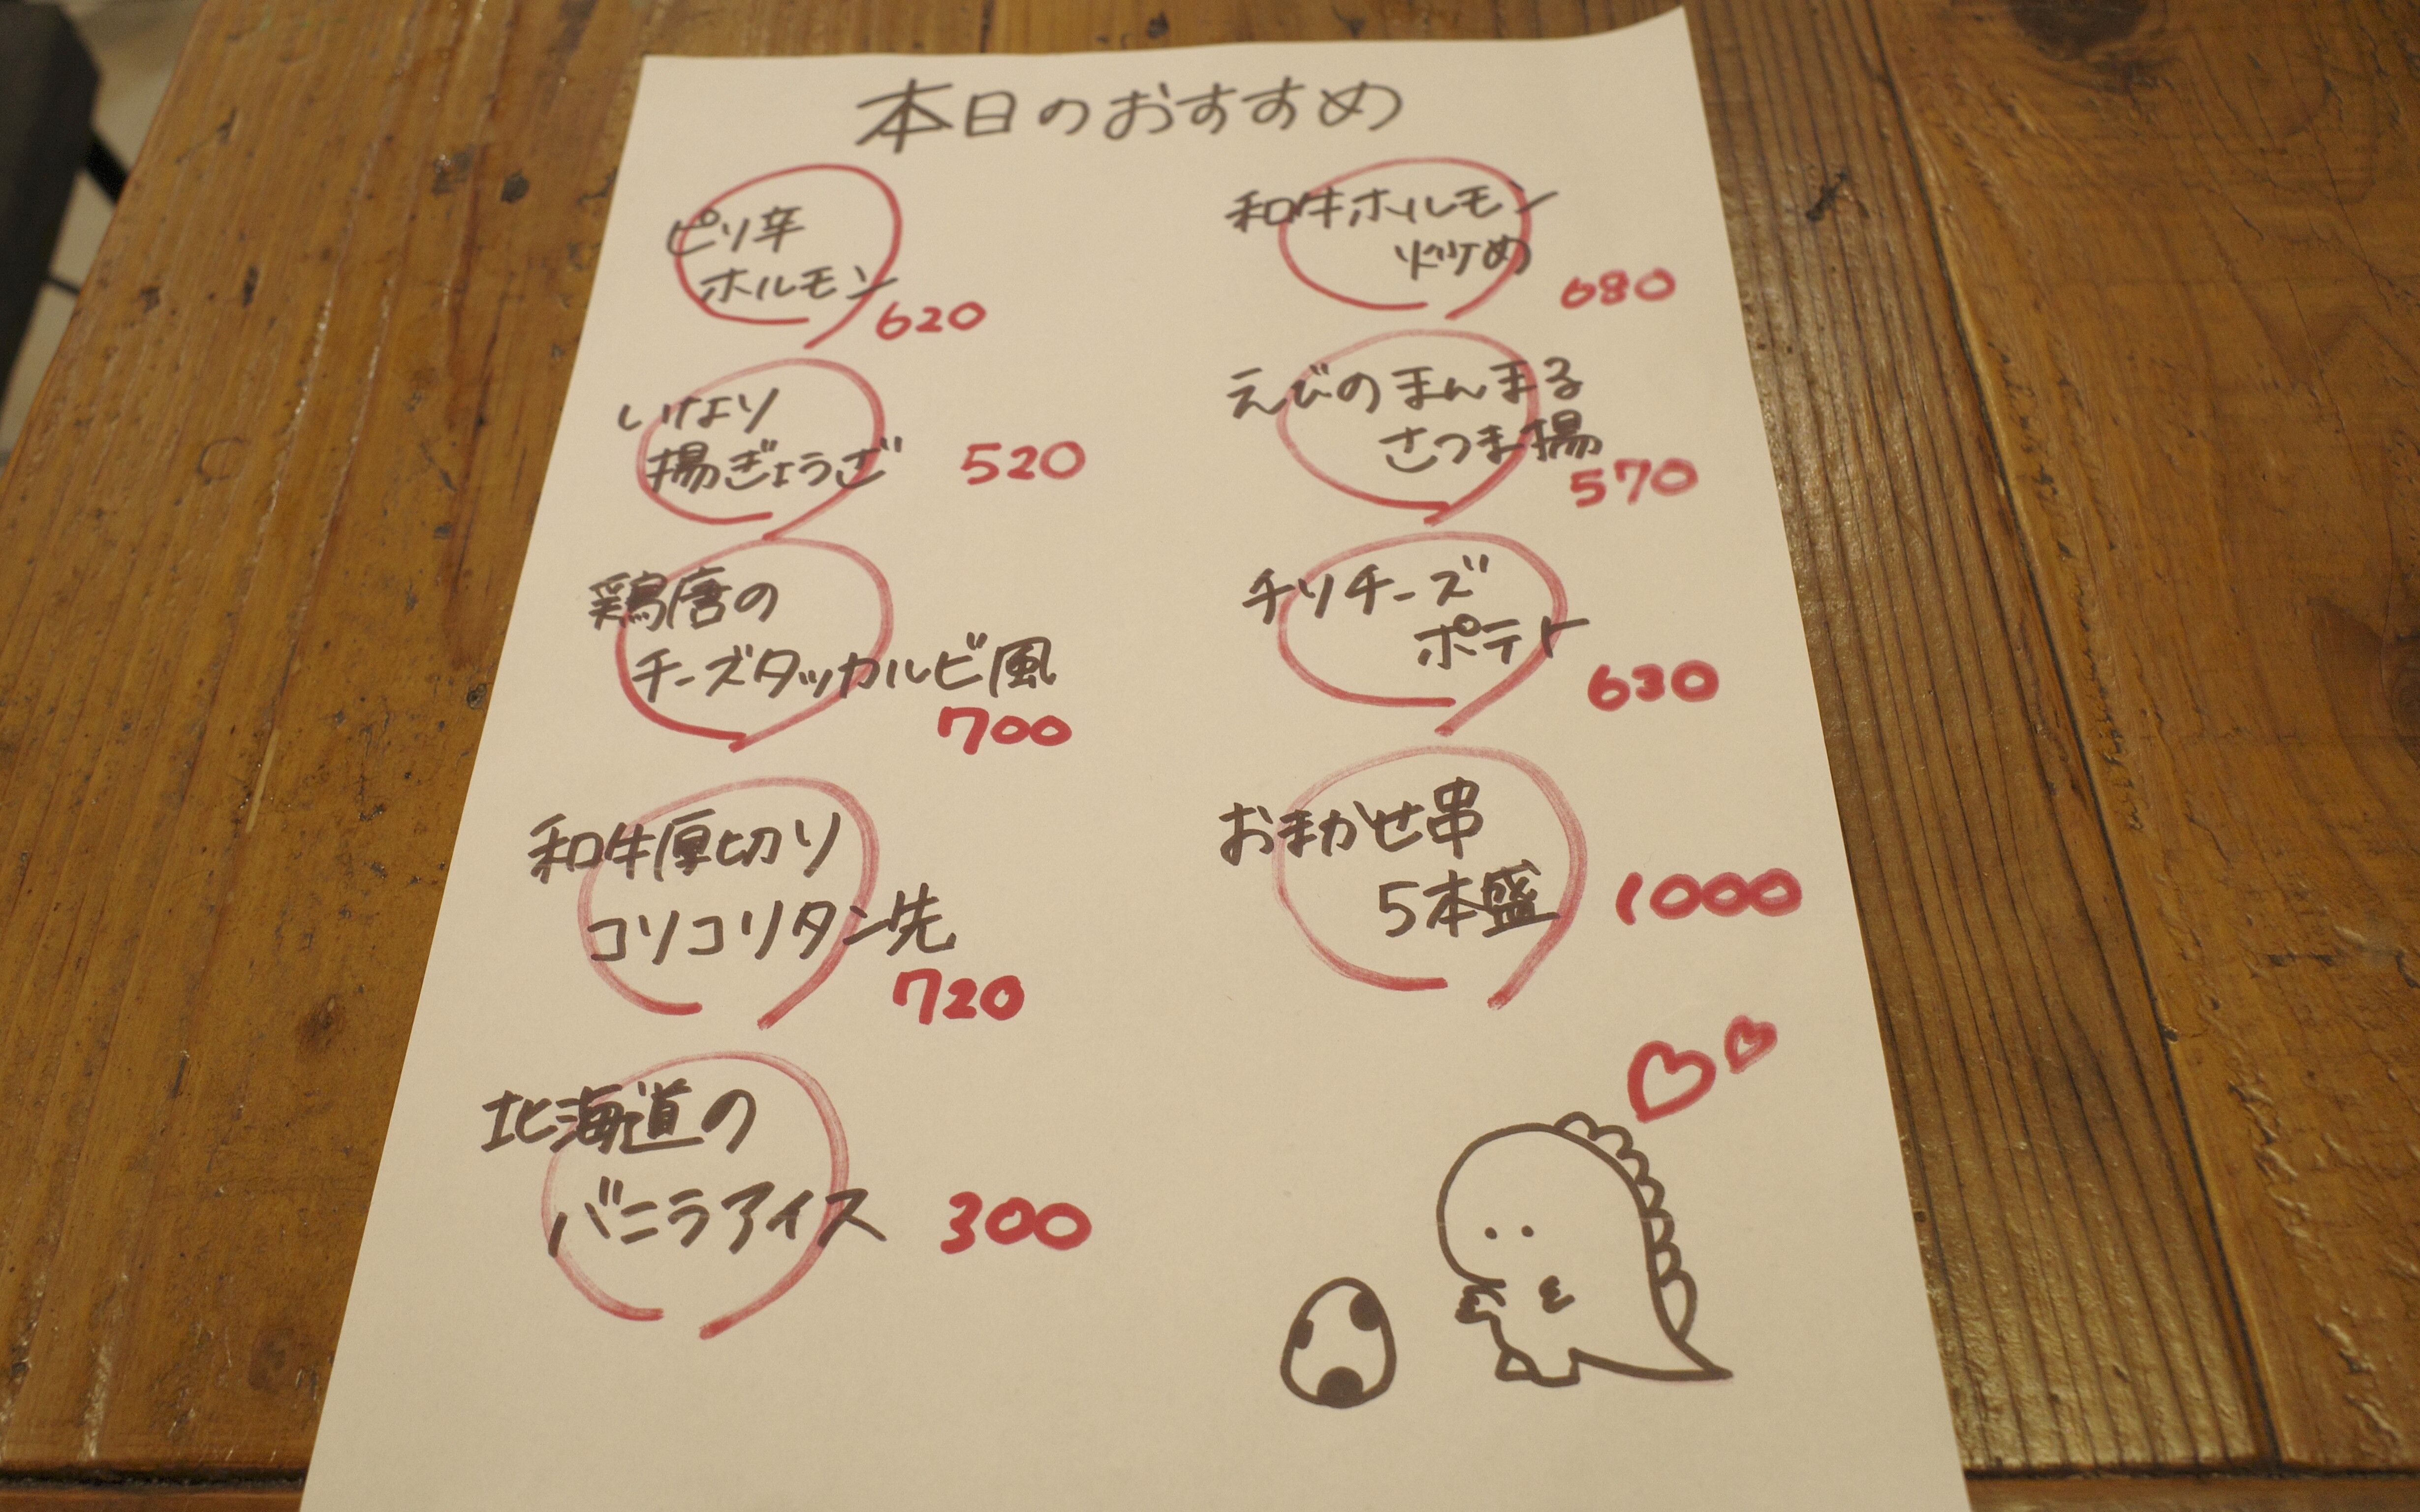 本日のおすすめ
ピリ辛
ホルモン
620
いなり
揚ぎょうざ 520
鶏唐の
チーズタッカルビ風
700
和牛厚切り
コリコリタン先
720
北海道の
バニラアイス 300
和牛ホルモン
炒め
680
えびのまんまる
さつま揚
570
チリチーズ
ポテト
630
おまかせ串
5本盛 1000